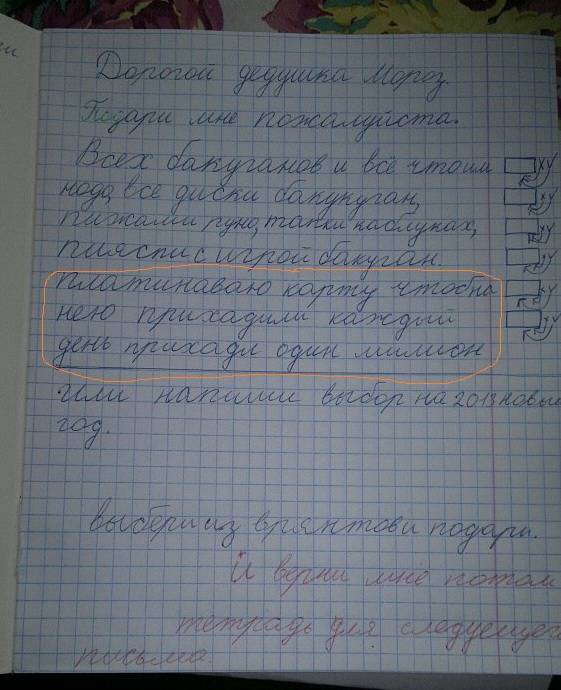 Дорогой дедушка Мороз.
Подари мне пожалуйста.
Всех бакуганов и все что им
надо, все диски бакукуган,
пижами руно, тапки каблуках,
пияспи с игрой бакуган.
платинаваю карту чтоб на
нею прихадили каждый
день прихадл один милион
или напиши выбор на 2013 новый
год.
выбери из врянтов и подари.
И верни мне потом
тетрадь для следующего
письма.